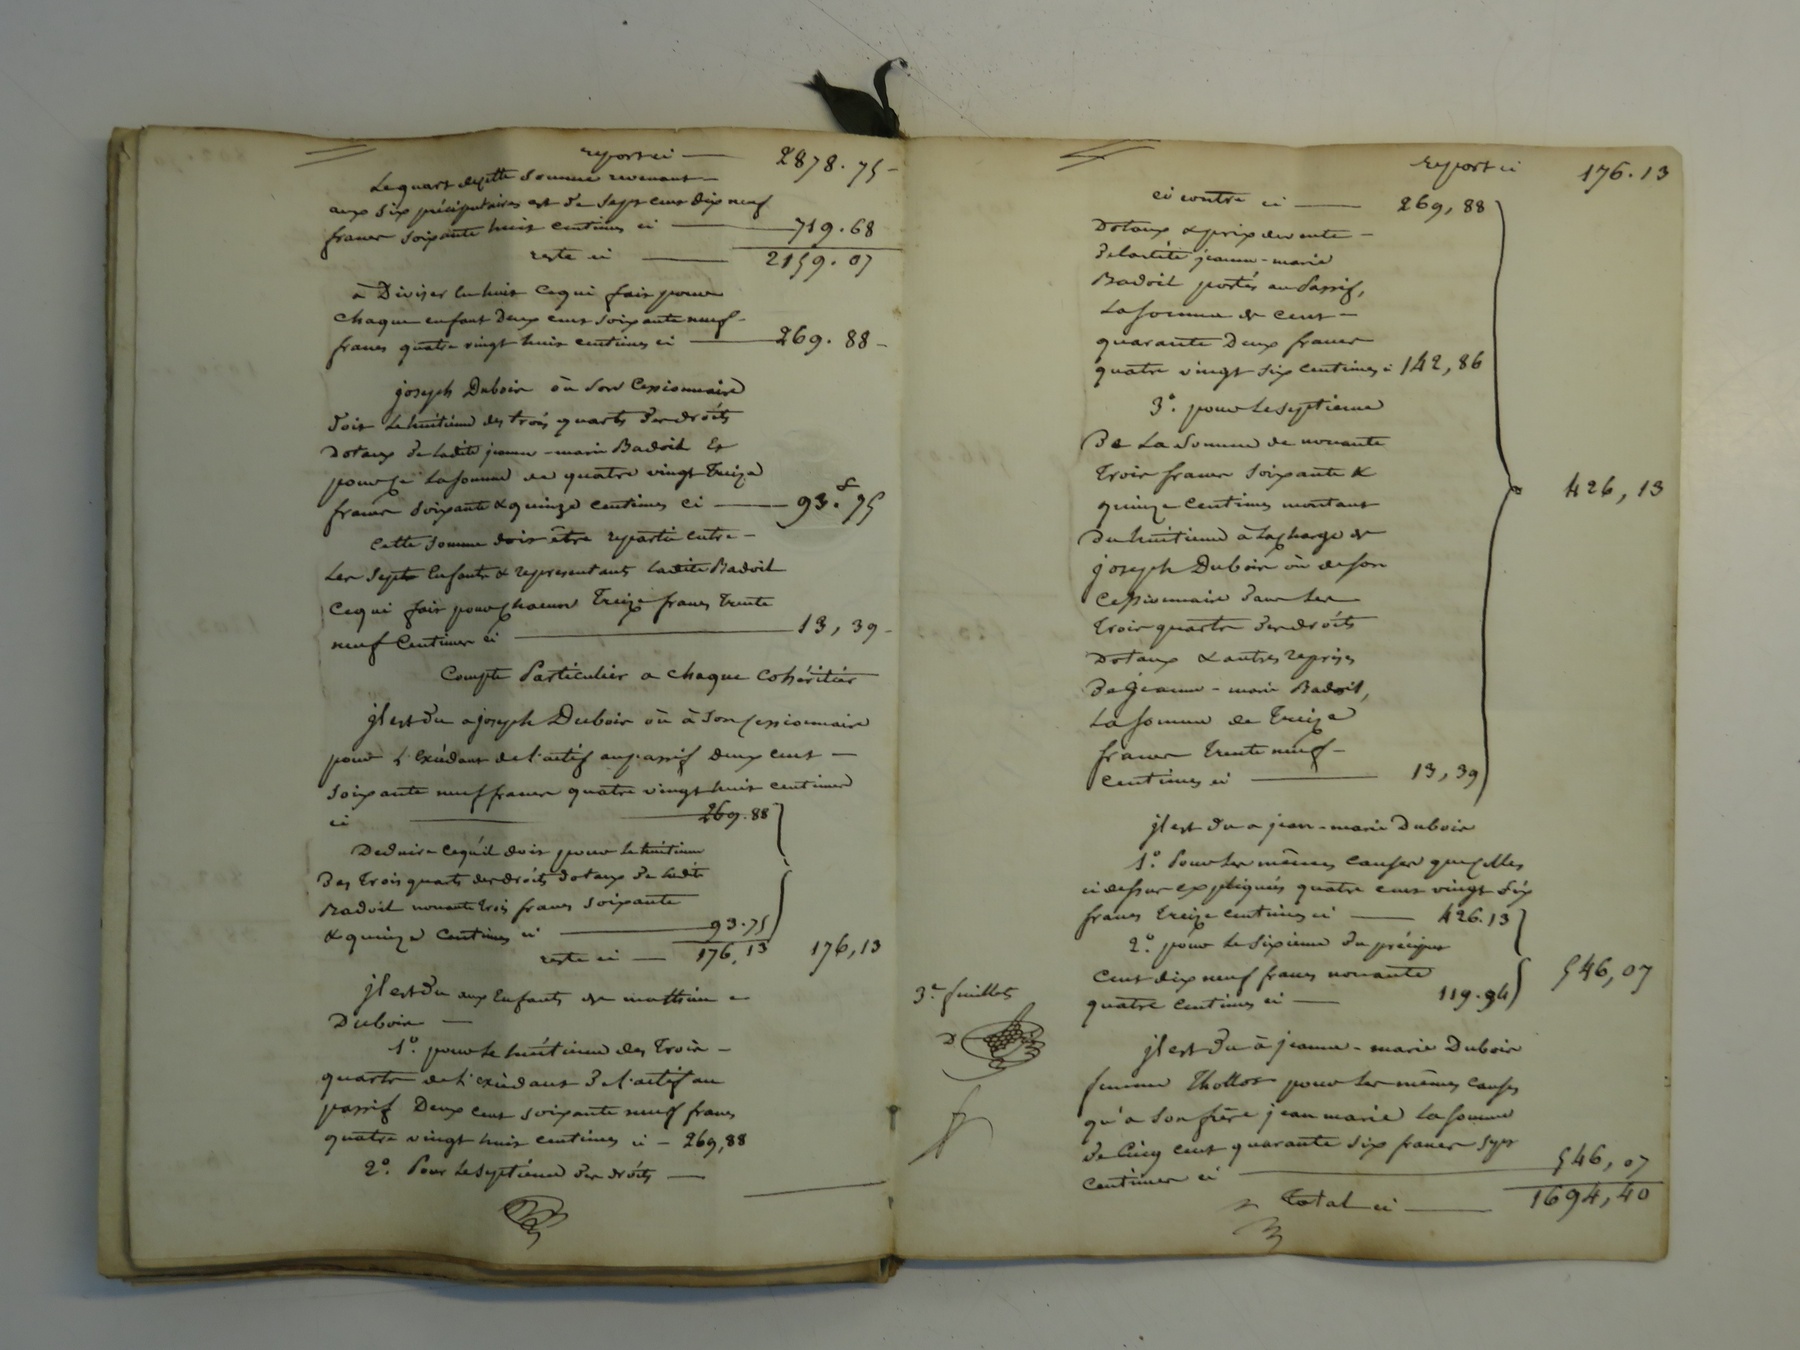 report ci — 2878.75
Le quart de cette Somme revenant
aux Six préciputaires est de Sept cent dix neuf
francs Soixante huit centimes ci — 719.68
reste ci — 2159.07
à Diviser en huit Ce qui fait pour
chaque enfant Deux cent soixante neuf
francs quatre vingt huit centimes ci — 269.88
joseph Dubois où Son Cessionnaire
doit Le huitieme des trois quarts Des droits
Dotaux de Ladite jeanne-marie Badoil Et
pour Ce La somme de quatre vingt Treize
francs Soixante & quinze centimes ci — 93.75
Cette Somme doit être repartie entre
Les Septs Enfants & representants Ladite Badoil
Ce qui fait pour Chacun Treize francs Trente
neuf Centimes ci — 13,39
Compte Particulier a chaque Cohéritier
jl est Du a joseph Dubois où à Son Cessionnaire
pour L'Exédant de l'actif au passif deux cent
Soixante neuf francs quatre vingt huit centimes
ci — 269.88
Deduire Ce qu'il doit pour Le huitieme
Des Trois quarts des droits dotaux de Ladite
Badoil nonante trois francs Soixante
& quinze Centimes ci — 93.75
reste ci — 176,13 176,13
jl est Du aux Enfants de mathieu
Dubois —
1º. pour Le huitieme des Trois
quarts de L'exédant De l'actif au
passif Deux cent soixante neuf francs
quatre vingt huit centimes ci — 269,88
2º. Pour Le Septieme Des droits —
report ci 176.13
ci contre ci — 269,88
Dotaux & prix de vente
De Ladite jeanne-marie
Badoil portés au Passif,
La Somme de cent
quarante Deux francs
quatre vingt six centimes ci 142,86
3º. pour Le Septieme
De La Somme de nonante
Trois francs Soixante &
quinze centimes montant
Du huitieme à La charge de
joseph Dubois où de son
Cessionnaire Dans Les
Trois quarts Des droits
Dotaux & autres reprises
De Jeanne-marie Badoil,
La Somme de Treize
francs Trente neuf
Centimes ci — 13,39
426,13
jl est Du a jean-marie Dubois
1º. Pour Les mêmes causes que celles
ci dessus expliquées quatre cent vingt Six
francs Treize centimes ci — 426.13
2º. pour Le Sixieme Du préciput
Cent dix neuf francs nonante
quatre centimes ci — 119.94
546,07
3e feuillet
jl est Du à jeanne-marie Dubois
femme Thollot pour Les mêmes causes
qu'a Son frère jean marie La somme
de Cinq cent quarante Six francs Sept
Centimes ci — 546,07
Total ci — 1694,40